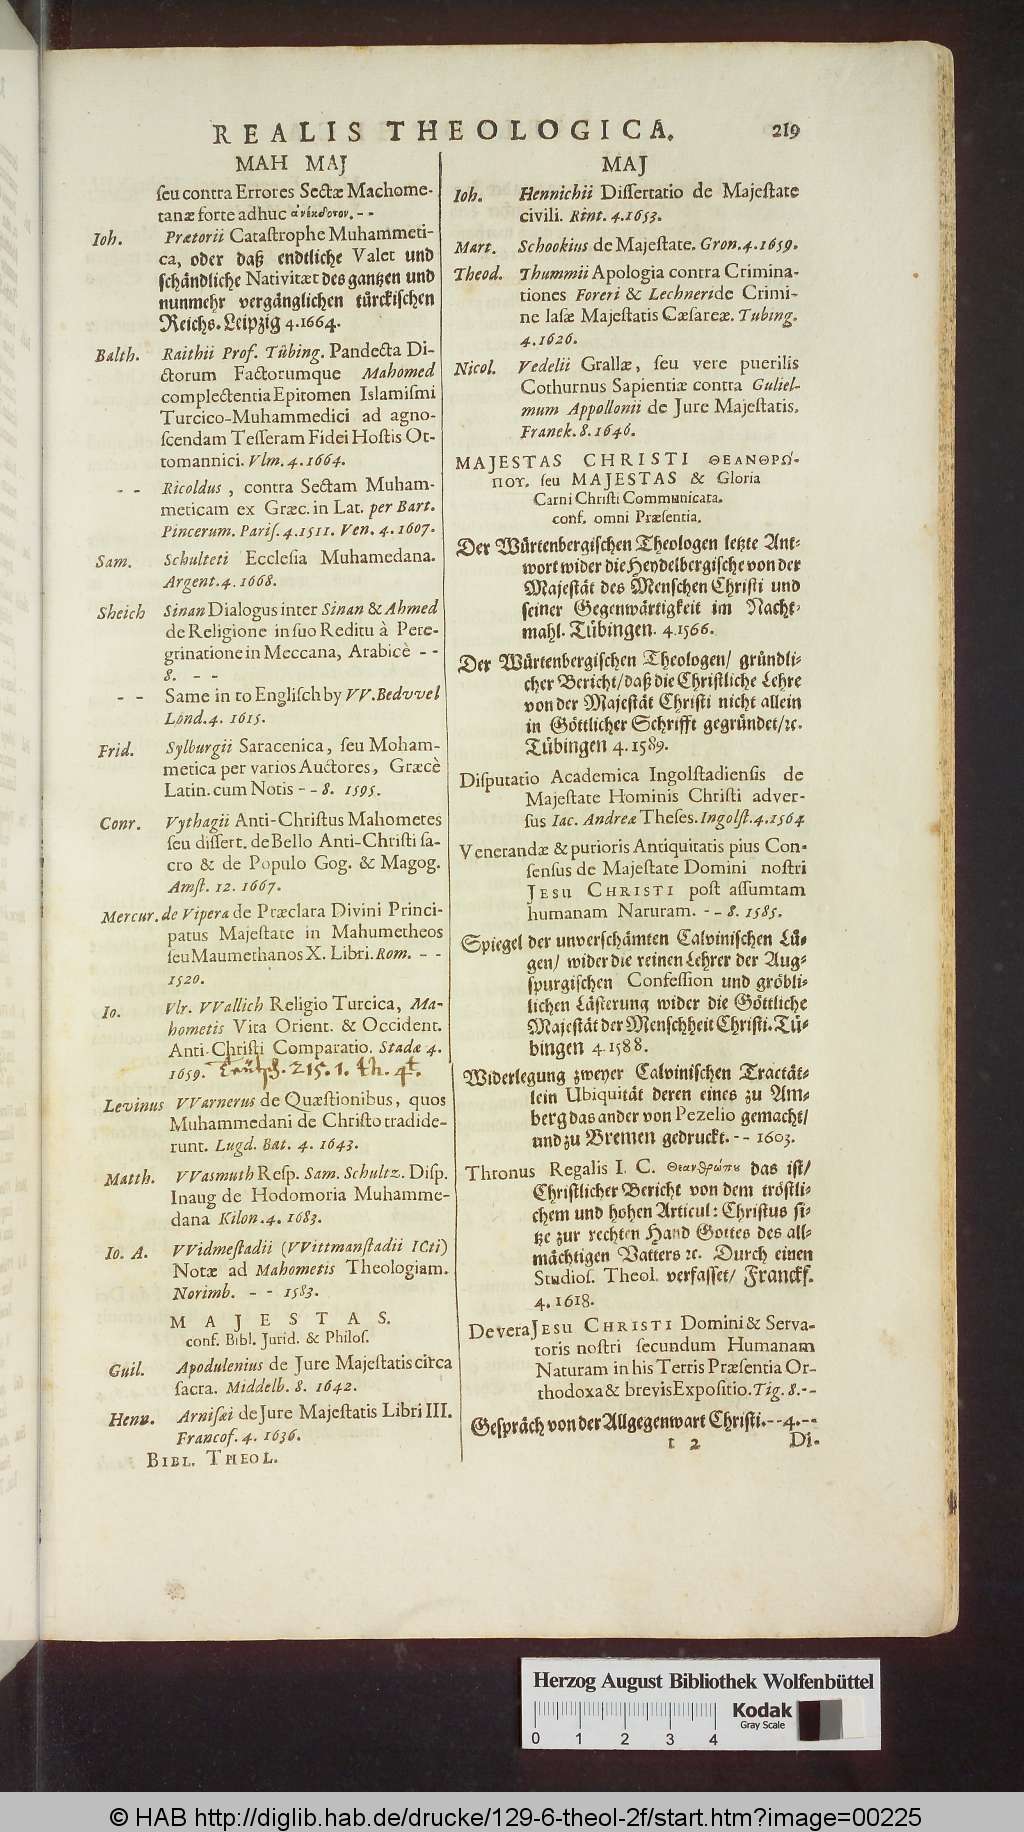 REALIS THEOLOGICA. 219
MAH MAJ
seu contra Errores Sectæ Machome-
tanæ forte adhuc ἀνέκδοτον. - -
Ioh. Prætorii Catastrophe Muhammeti-
ca, oder daß endtliche Valet und
schändliche Nativitæt des gantzen und
nunmehr vergänglichen türckischen
Reichs. Leipzig 4. 1664.
Balth. Raithii Prof. Tübing. Pandecta Di-
ctorum Factorumque Mahomed
complectentia Epitomen Islamismi
Turcico-Muhammedici ad agno-
scendam Tesseram Fidei Hostis Ot-
tomannici. Vlm. 4. 1664.
- - Ricoldus, contra Sectam Muham-
meticam ex Græc. in Lat. per Bart.
Pincerum. Paris. 4. 1511. Ven. 4. 1607.
Sam. Schulteti Ecclesia Muhamedana.
Argent. 4. 1668.
Sheich Sinan Dialogus inter Sinan & Ahmed
de Religione in suo Reditu à Pere-
grinatione in Meccana, Arabicè - -
8. - -
- - Same in to Englisch by VV. Bedvvel
Lond. 4. 1615.
Frid. Sylburgii Saracenica, seu Moham-
metica per varios Auctores, Græcè
Latin. cum Notis - - 8. 1595.
Conr. Vythagii Anti-Christus Mahometes
seu dissert. de Bello Anti-Christi sa-
cro & de Populo Gog. & Magog.
Amst. 12. 1667.
Mercur. de Vipera de Præclara Divini Princi-
patus Majestate in Mahumetheos
seu Maumethanos X. Libri. Rom. - -
1520.
Io. Vlr. VVallich Religio Turcica, Ma-
hometis Vita Orient. & Occident.
Anti-Christi Comparatio. Stadæ 4.
1659. Teütsch. 215. 1. th. 4t.
Levinus VVarnerus de Quæstionibus, quos
Muhammedani de Christo tradide-
runt. Lugd. Bat. 4. 1643.
Matth. VVasmuth Resp. Sam. Schultz. Disp.
Inaug de Hodomoria Muhamme-
dana Kilon. 4. 1683.
Io. A. VVidmestadii (VVittmanstadii ICti)
Notæ ad Mahometis Theologiam.
Norimb. - - 1583.
MAJESTAS.
conf. Bibl. Jurid. & Philos.
Guil. Apodulenius de Jure Majestatis circa
sacra. Middelb. 8. 1642.
Henr. Arnisæi de Jure Majestatis Libri III.
Francof. 4. 1636.
BIBL. THEOL.
MAJ
Ioh. Hennichii Dissertatio de Majestate
civili. Rint. 4. 1653.
Mart. Schookius de Majestate. Gron. 4. 1659.
Theod. Thummii Apologia contra Crimina-
tiones Foreri & Lechneri de Crimi-
ne læsæ Majestatis Cæsareæ. Tubing.
4. 1626.
Nicol. Vedelii Grallæ, seu vere puerilis
Cothurnus Sapientiæ contra Guliel-
mum Appollonii de Jure Majestatis.
Franek. 8. 1646.
MAJESTAS CHRISTI ΘΕΑΝΘΡΩ-
ΠΟΥ. seu MAJESTAS & Gloria
Carni Christi Communicata.
conf. omni Præsentia.
Der Würtenbergischen Theologen letzte Ant-
wort wider die Heydelbergische von der
Majestät des Menschen Christi und
seiner Gegenwärtigkeit im Nacht-
mahl. Tübingen. 4. 1566.
Der Würtenbergischen Theologen/ gründli-
cher Bericht/ daß die Christliche Lehre
von der Majestät Christi nicht allein
in Göttlicher Schrifft gegründet/ ꝛc.
Tübingen 4. 1589.
Disputatio Academica Ingolstadiensis de
Majestate Hominis Christi adver-
sus Iac. Andreæ Theses. Ingolst. 4. 1564
Venerandæ & purioris Antiquitatis pius Con-
sensus de Majestate Domini nostri
JESU CHRISTI post assumtam
humanam Naturam. - - 8. 1585.
Spiegel der unverschämten Calvinischen Lü-
gen/ wider die reinen Lehrer der Aug-
spurgischen Confession und gröbli-
lichen Lästerung wider die Göttliche
Majestät der Menschheit Christi. Tü-
bingen 4. 1588.
Widerlegung zweyer Calvinischen Tractät-
lein Ubiquität deren eines zu Am-
berg das ander von Pezelio gemacht/
und zu Bremen gedruckt. - - 1603.
Thronus Regalis I. C. Θεανθρώπου das ist/
Christlicher Bericht von dem tröstli-
chem und hohen Articul: Christus si-
tze zur rechten Hand Gottes des all-
mächtigen Vatters ꝛc. Durch einen
Studios. Theol. verfasset/ Franckf.
4. 1618.
De vera JESU CHRISTI Domini & Serva-
toris nostri secundum Humanam
Naturam in his Terris Præsentia Or-
thodoxa & brevis Expositio. Tig. 8. - -
Gespräch von der Allgegenwart Christi. - - 4. - -
t 2 Di-
Herzog August Bibliothek Wolfenbüttel
0 1 2 3 4
Kodak
Gray Scale
© HAB http://diglib.hab.de/drucke/129-6-theol-2f/start.htm?image=00225